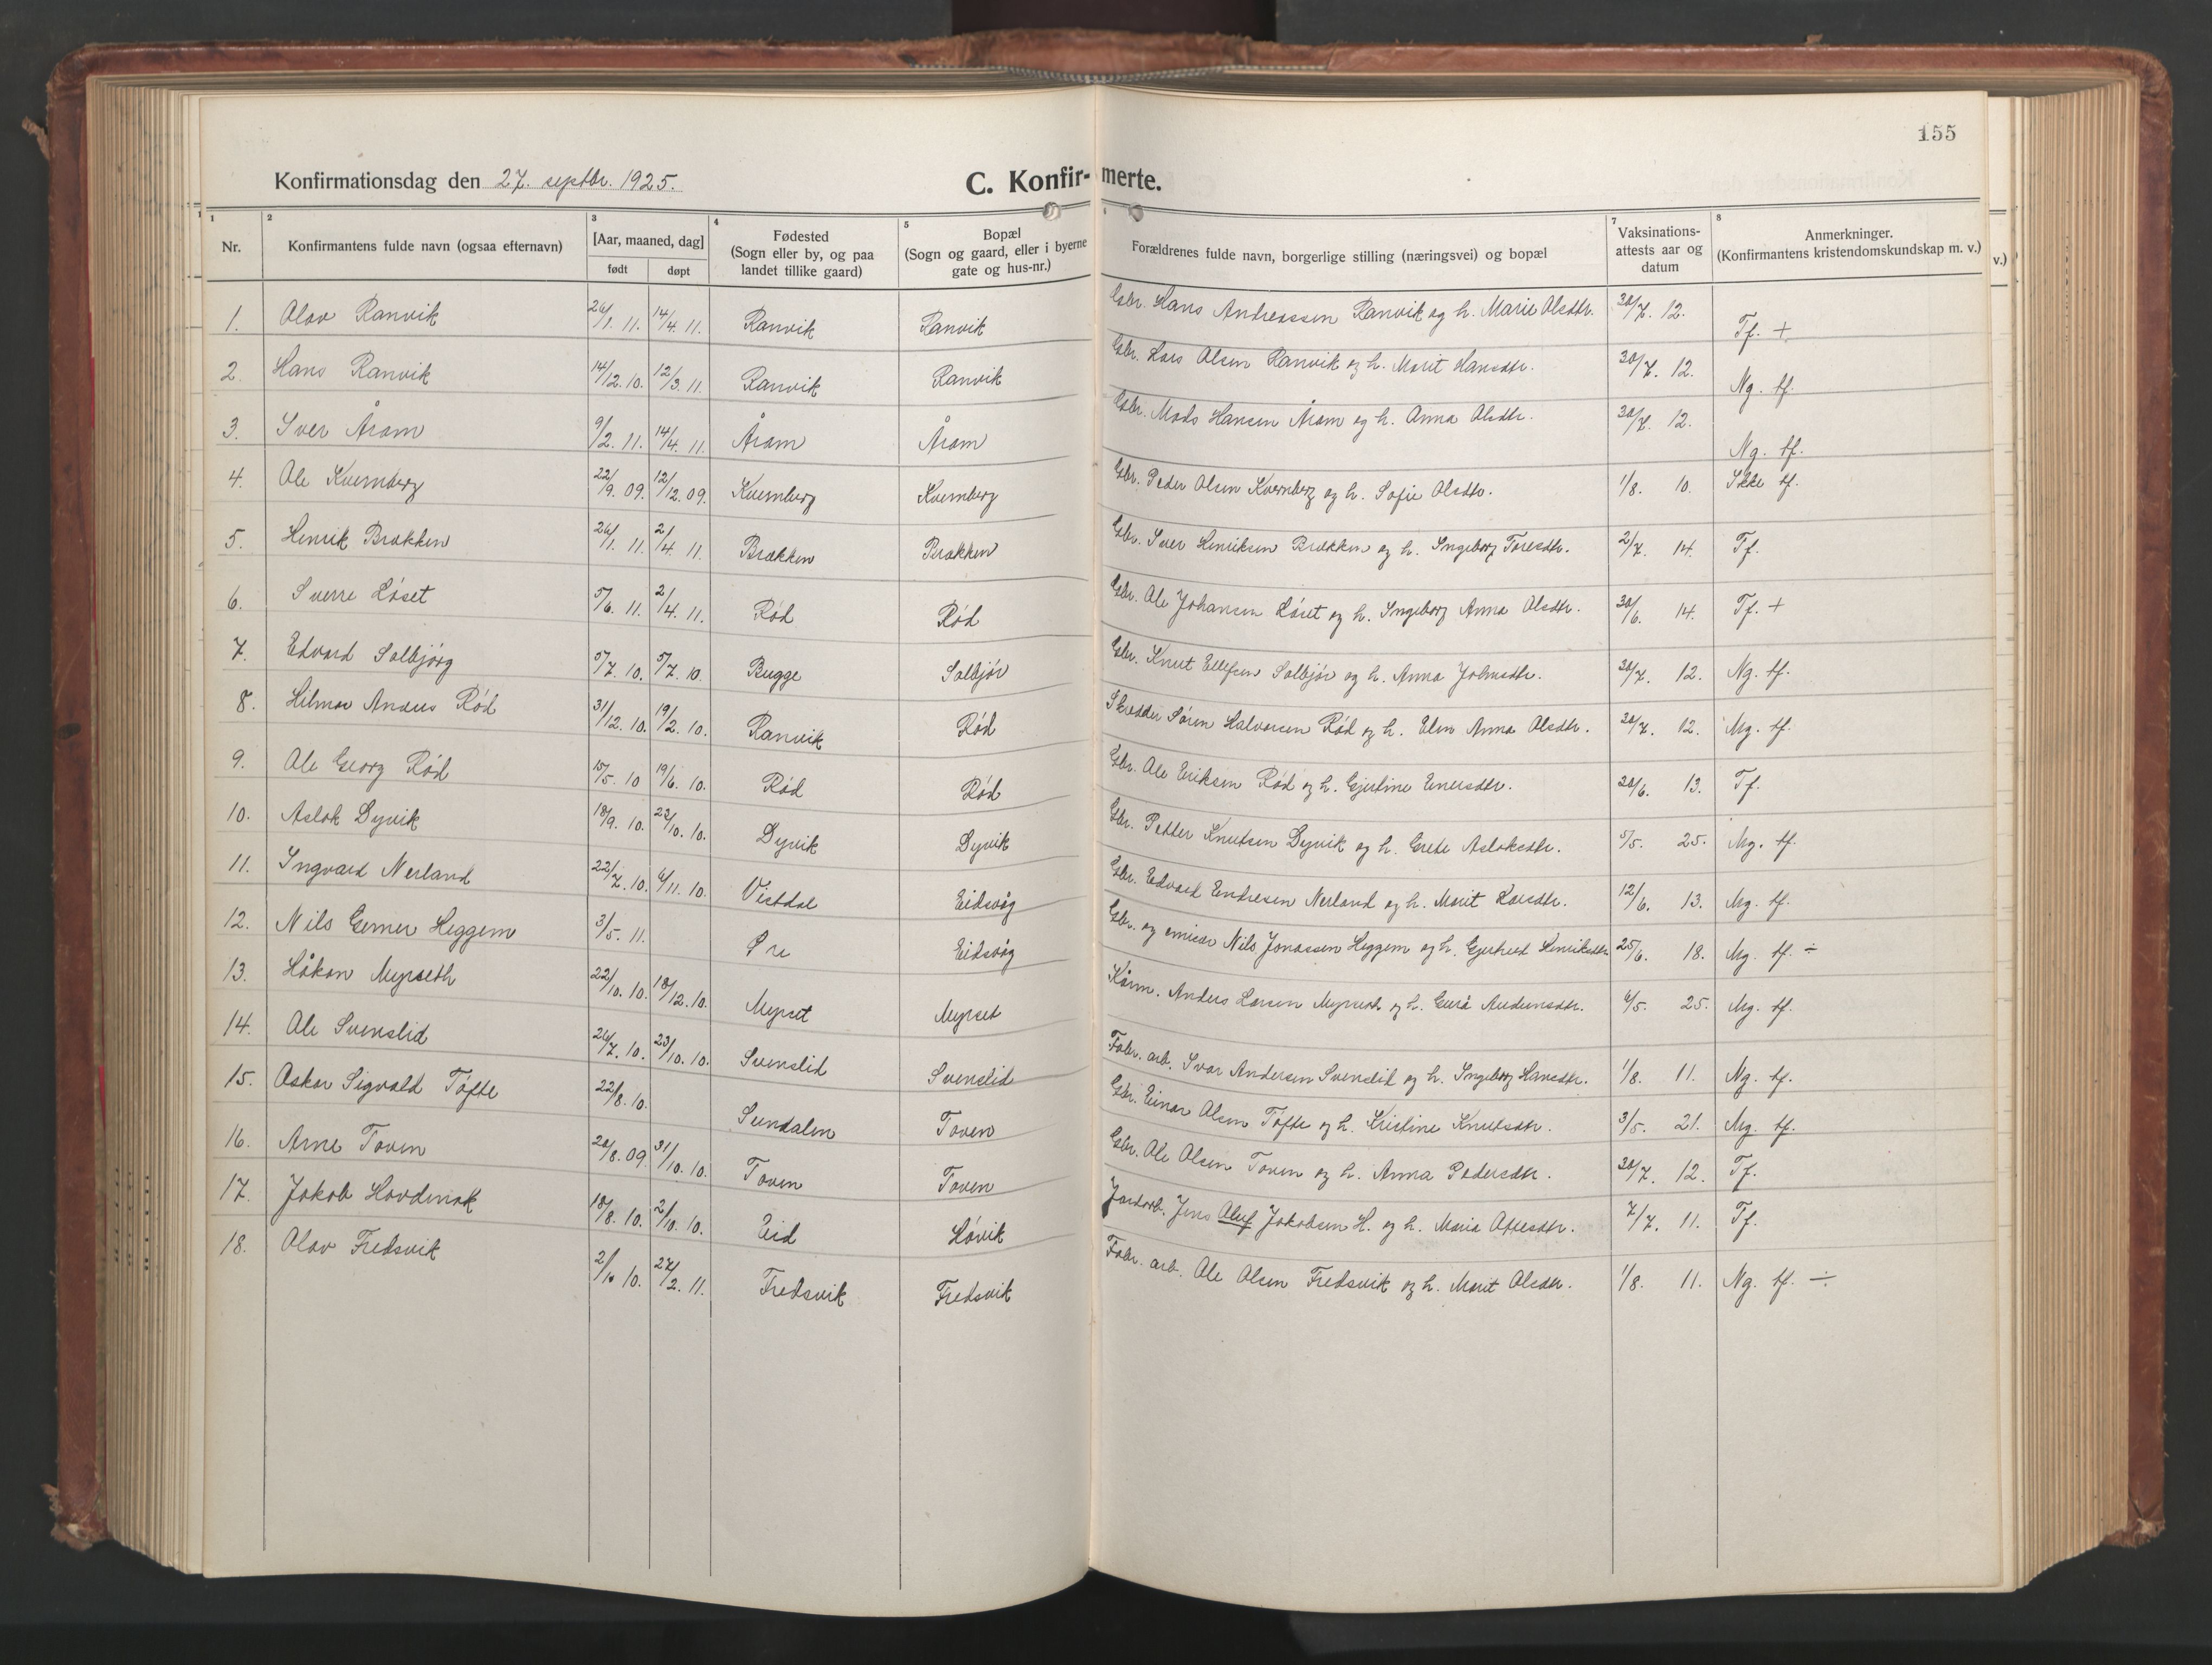 155
Konfirmationsdag den 27. septbr. 1925.
C. Konfir-merte.
1 2 3 4 5 6 7 8
Nr. | Konfirmantens fulde navn (ogsaa efternavn) | [Aar, maaned, dag] født | døpt | Fødested (Sogn eller by, og paa landet tillike gaard) | Bopæl (Sogn og gaard, eller i byerne gate og hus-nr.) | Forældrenes fulde navn, borgerlige stilling (næringsvei) og bopæl | Vaksinations-attests aar og datum | Anmerkninger. (Konfirmantens kristendomskundskap m. v.)
v.)
1. Olav Ranvik 26/1. 11. 14/4. 11. Ranvik Ranvik Gbr. Hans Andreassen Ranvik og h. Marie Olsdtr. 30/7. 12. Tf. +
2. Hans Ranvik 14/12. 10. 12/3. 11. Ranvik Ranvik Gbr. Lars Olsen Ranvik og h. Marit Hansdtr. 30/7. 12. Ng. tf.
3. Iver Åram 9/2. 11. 14/4. 11. Åram Åram Gbr. Mads Hansen Åram og h. Anna Olsdtr. 30/7. 12. Ng. tf.
4. Ole Kvernberg 22/9. 09. 12/12. 09. Kvernberg Kvernberg Gbr. Peder Olsen Kvernberg og h. Sofie Olsdtr. 1/8. 10. Ikke tf.
5. Henrik Brakken 26/1. 11. 2/4. 11. Brakken Brakken Gbr. Iver Henriksen Brakken og h. Ingeborg Toresdtr. 2/7. 14. Tf.
6. Sverre Løset 5/6. 11. 2/4. 11. Rød Rød Gbr. Ole Johansen Løset og h. Ingeborg Anna Olsdtr. 30/6. 14. Tf. +
7. Edvard Solbjørg 5/7. 10. 5/7. 10. Bugge Solbjør Gbr. Knut Ellefsen Solbjør og h. Anna Johnsdtr. 30/7. 12. Ng. tf.
8. Hilmar Anders Rød 31/12. 10. 19/2. 10. Ranvik Rød Skredder Søren Halvorsen Rød og h. Elen Anna Olsdtr. 30/7. 12. Mg. tf.
9. Ole Georg Rød 15/5. 10 19/6. 10. Rød Rød Gbr. Ole Eriksen Rød og h. Gjertine Einersdtr. 20/6. 13. Tf.
10. Aslak Dyvik 18/9. 10. 23/10. 10. Dyvik Dyvik Gbr. Petter Knutsen Dyvik og h. Grete Aslaksdtr. 5/5. 25. Mg. tf.
11. Ingvard Nerland 22/7. 10. 6/11. 10. Vistdal Eidsvåg Gbr. Edvard Endresen Nerland og h. Marit Larsdtr. 12/6. 13. Mg. tf.
12. Nils Gerner Heggem 3/5. 11. Øre Eidsvåg Gbr. og emisær Nils Jonassen Heggem og h. Gjertrud Henriksdtr. 25/6. 18. Mg. tf. ÷
13. Håkon Myrseth 22/10. 10. 18/12. 10. Myrset Myrset Kårm. Anders Larsen Myrseth og h. Gurå Audunsdtr. 6/5. 25. Mg. tf.
14. Ole Svenslid 26/7. 10. 23/10. 10. Svenslid Svenslid Fabr. arb. Ivar Andersen Svenslid og h. Ingeborg Hansdtr. 1/8. 11. Ng. tf.
15. Oskar Sigvald Tøfte 22/8. 10. Sundalen Toven Gbr. Einar Olsen Tøfte og h. Kristine Knutsdtr. 3/5. 21. Mg. tf.
16. Arne Toven 20/8. 09. 31/10. 10. Toven Toven Gbr. Ole Olsen Toven og h. Anna Pedersdtr. 30/7. 12. Tf.
17. Jakob Hovdenak 18/8. 10. 2/10. 10. Eid Høvik Jordarb. Jens Oluf Jakobsen H. og h. Maria Ottesdtr. 7/7. 11. Tf.
18. Olav Fredsvik 2/10 10. 27/2. 11. Fredsvik Fredsvik Fabr. arb. Ole Olsen Fredsvik og h. Marit Olsdtr. 1/8. 11. Ng. tf. ÷